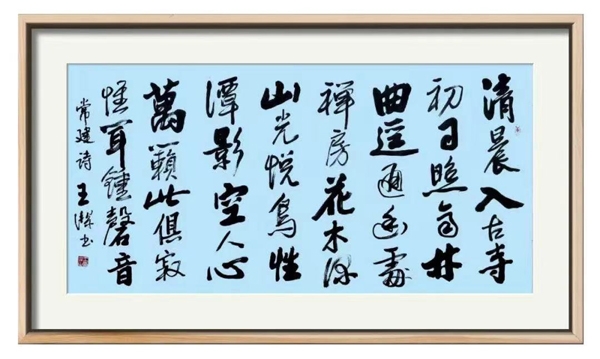 清晨入古寺
初日照高林
曲逕通幽處
禪房花木深
山光悅鳥性
潭影空人心
萬籟此俱寂
惟聞鍾磬音
常建诗 王 书